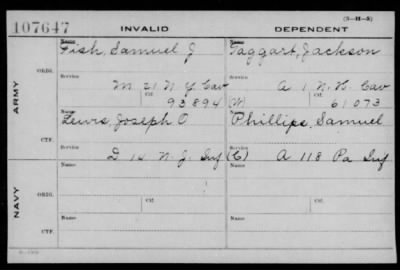 (3-H-5)
107647 INVALID DEPENDENT
ARMY
ORIG.
Name Name
Fish, Samuel J Taggart, Jackson
Service Service
M 21 N Y Cav A 1 N.H. Cav
Ctf. Ctf.
93894 (W) 61073
CTF.
Name Name
Lewis, Joseph O Phillips, Samuel
Service Service
D 14 N. J. Inf (C) A 118 Pa Inf
NAVY
ORIG.
Name Name
Service Ctf. Service Ctf.
CTF.
Name Name